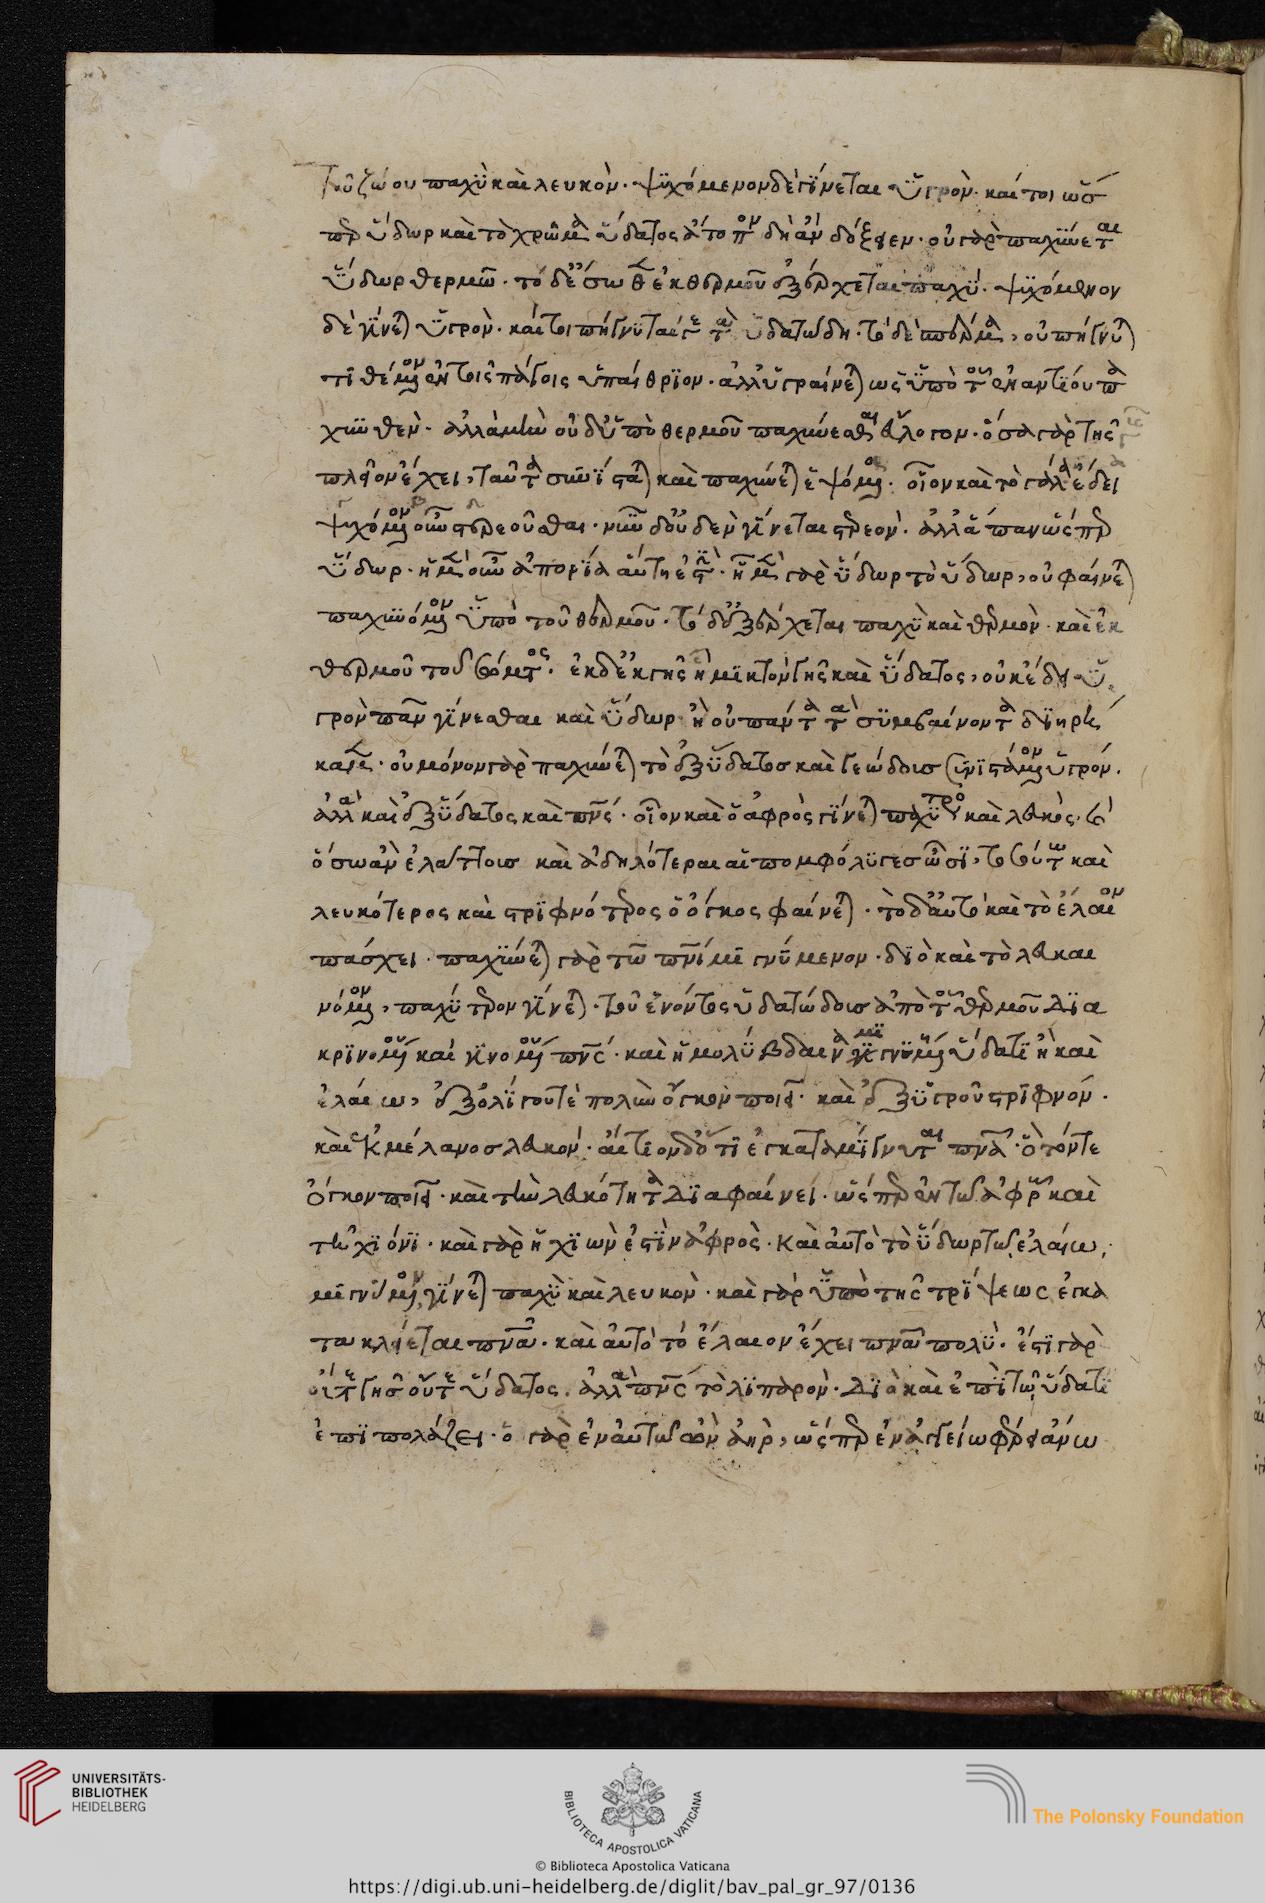 τοῦ ζώου παχὺ καὶ λευκὸν. ψυχόμενον δὲ γίνεται ὑγρὸν. καί τοι ὥσ
περ ὕδωρ καὶ τὸ χρῶμα ὕδατος ἄτοπον δὴ ἂν δόξειεν. οὐ γὰρ παχύνεται
ὕδωρ θερμῶ. τὸ δ' ἔσωθεν ἐκ θερμοῦ ἐξέρχεται παχύ. ψυχόμενον
δὲ γίνεται ὑγρὸν. καίτοι πήγνυται γε τὰ ὑδατώδη. τὸ δὲ σπέρμα, οὐ πήγνυται
τιθέμενον ἐν τοῖς πάγοις ὑπαίθριον. ἀλλ' ὑγραίνεται ὡς ὑπὸ τοῦ ἐναντίου πα
χυνθὲν. ἀλλὰ μὴν οὐδ' ὑπὸ θερμοῦ παχύνεσθαι εὔλογον. ὅσα γὰρ γῆς
πλεῖον ἔχει, ταῦτα συνίσταται καὶ παχύνεται ἑψόμενα. οἷον καὶ τὸ γάλα ἔδει
ψυχόμενον οὖν στερεοῦσθαι. νῦν δ' οὐδὲν γίνεται στερεὸν. ἀλλὰ πᾶν ὥσπερ
ὕδωρ. ἡ μὲν οὖν ἀπορία αὕτη ἐστὶν. ἡ μὲν γὰρ ὕδωρ τὸ ὕδωρ, οὐ φαίνεται
παχυνόμενον ὑπὸ τοῦ θερμοῦ. τὸ δ' ἐξέρχεται παχὺ καὶ θερμὸν. καὶ ἐκ
θερμοῦ τοῦ σώματος. εἰ δ' ἐκ γῆς ἢ μικτὸν γῆς καὶ ὕδατος, οὐκ ἔδει ὑ
γρὸν πᾶν γίνεσθαι καὶ ὕδωρ ἢ οὐ πάντα τὰ συμβαίνοντα διηρή
καμεν. οὐ μόνον γὰρ παχύνεται τὸ ἐξ ὕδατος καὶ γεώδους συνιστάμενον ὑγρόν.
ἀλλὰ καὶ ἐξ ὕδατος καὶ πνς. οἷον καὶ ὁ ἀφρὸς γίνεται παχύτερος καὶ λευκὸς. καὶ
ὅσω ἂν ἐλάττους καὶ ἀδηλότεραι αἱ πομφόλυγες ὦσι, τοσούτω καὶ
λευκότερος καὶ στριφνότερος ὁ ὄγκος φαίνεται. τὸ δ' αὐτὸ καὶ τὸ ἔλαιον
πάσχει. παχύνεται γὰρ τῶ πνι μιγνύμενον. διὸ καὶ τὸ λευκαι
νόμενον, παχύτερον γίνεται. τοῦ ἐνόντος ὑδατώδους ἀπὸ τοῦ θερμοῦ δια
κρινομένου καὶ γινομένου πνς. καὶ ἡ μολύβδαινα μιγνυμένη ὕδατι ἢ καὶ
ἐλαίω, ἐξ ὀλίγου τε πολὺν ὄγκον ποιεῖ. καὶ ἐξ ὑγροῦ στριφνόν.
καὶ ἐκ μέλανος λευκόν. αἴτιον δ' ὅτι ἐγκαταμίγνυται πνα. ὃ τόν τε
ὄγκον ποιεῖ. καὶ τὴν λευκότητα διαφαίνει. ὥσπερ ἐν τῶ ἀφρῶ καὶ
τῆ χιόνι. καὶ γὰρ ἡ χιὼν ἐστὶν ἀφρὸς. καὶ αὐτὸ τὸ ὕδωρ τῶ ἐλαίω,
μιγνύμενον, γίνεται παχὺ καὶ λευκὸν. καὶ γὰρ ὑπὸ τῆς τρίψεως ἐγκα
τακλείεται πνα. καὶ αὐτὸ τὸ ἔλαιον ἔχει πνα πολὺ. ἔστι γὰρ
οὔτε γῆς οὔτε ὕδατος. ἀλλὰ πνς τὸ λιπαρὸν. διὸ καὶ ἐπὶ τῶ ὕδατι
ἐπιπολάζει. ὁ γὰρ ἐν αὐτῶ ὢν ἀὴρ, ὥσπερ ἐν ἀγγείω φέρει ἄνω
UNIVERSITÄTS-
BIBLIOTHEK
HEIDELBERG
BIBLIOTECA APOSTOLICA VATICANA
The Polonsky Foundation
© Biblioteca Apostolica Vaticana
https://digi.ub.uni-heidelberg.de/diglit/bav_pal_gr_97/0136